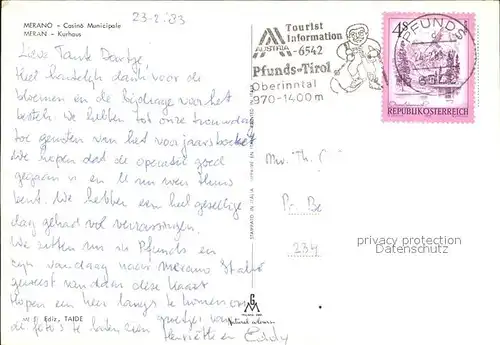 MERANO - Casinò Municipale
MERAN - Kurhaus
23-2-'83
Lieve Tante Dortje,
Heel hartelijk dank voor de
bloemen en de bijdrage voor het
bestek. We hebben tot onze trouwdag
toe genoten van het voorjaarsboeket
We hopen dat de operatie goed
gegaan is en U nu weer thuis
bent. We hebben een heel gezellige
dag gehad vol verrassingen.
We zitten nu in Pfunds en
zijn vandaag naar Merano Italië
geweest vandaar deze kaart
Hopen een keer langs te komen om
de foto's te laten zien groetjes van
Henriëtte en
Ediz. TAIDE
STAMPATO IN ITALIA
Tourist
Information
AUSTRIA -6542
Pfunds-Tirol
Oberinntal
970-1400m
PFUNDS
6542
4S
REPUBLIK ÖSTERREICH
Mw. Th.
234
privacy protection
Datenschutz